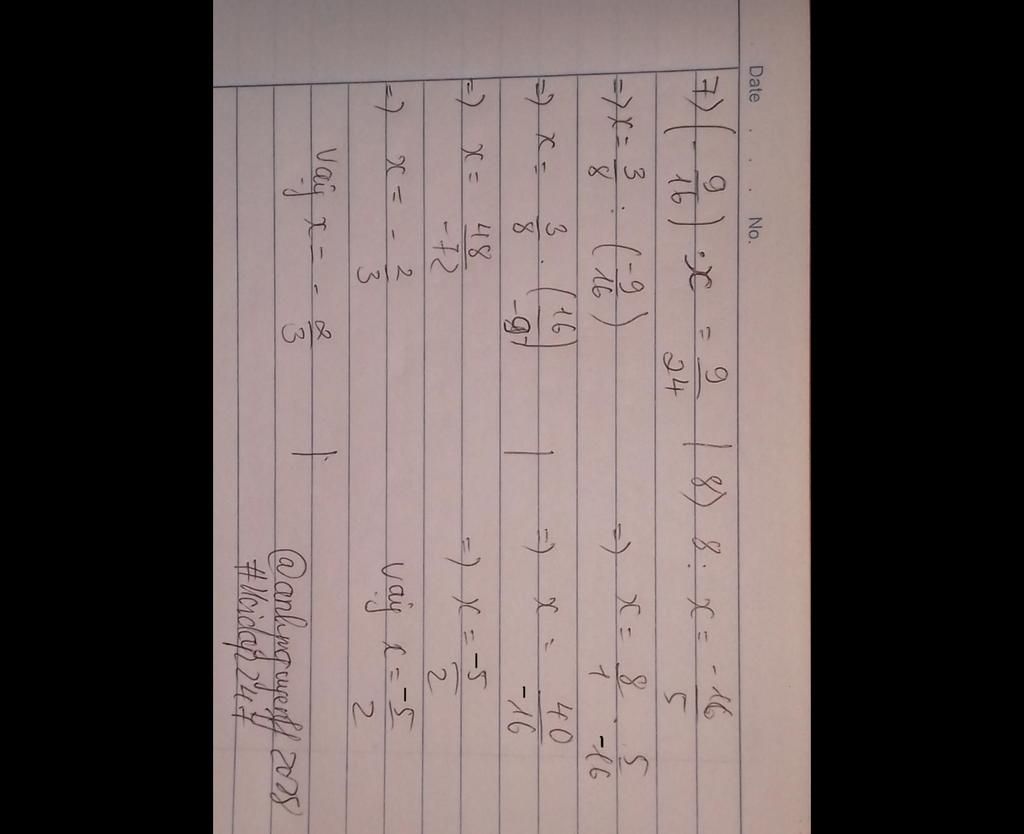 Date . . . No.
7) (-9/16) . x = 9/24 | 8) 8 : x = -16/5
=> x = 3/8 : (-9/16) => x = 8/1 . 5/-16
=> x = 3/8 . (16/-9) | => x = 40/-16
=> x = 48/-72 => x = -5/2
=> x = -2/3 Vậy x = -5/2
Vậy x = -2/3
@anhnguyenff2028
#Hoidap247